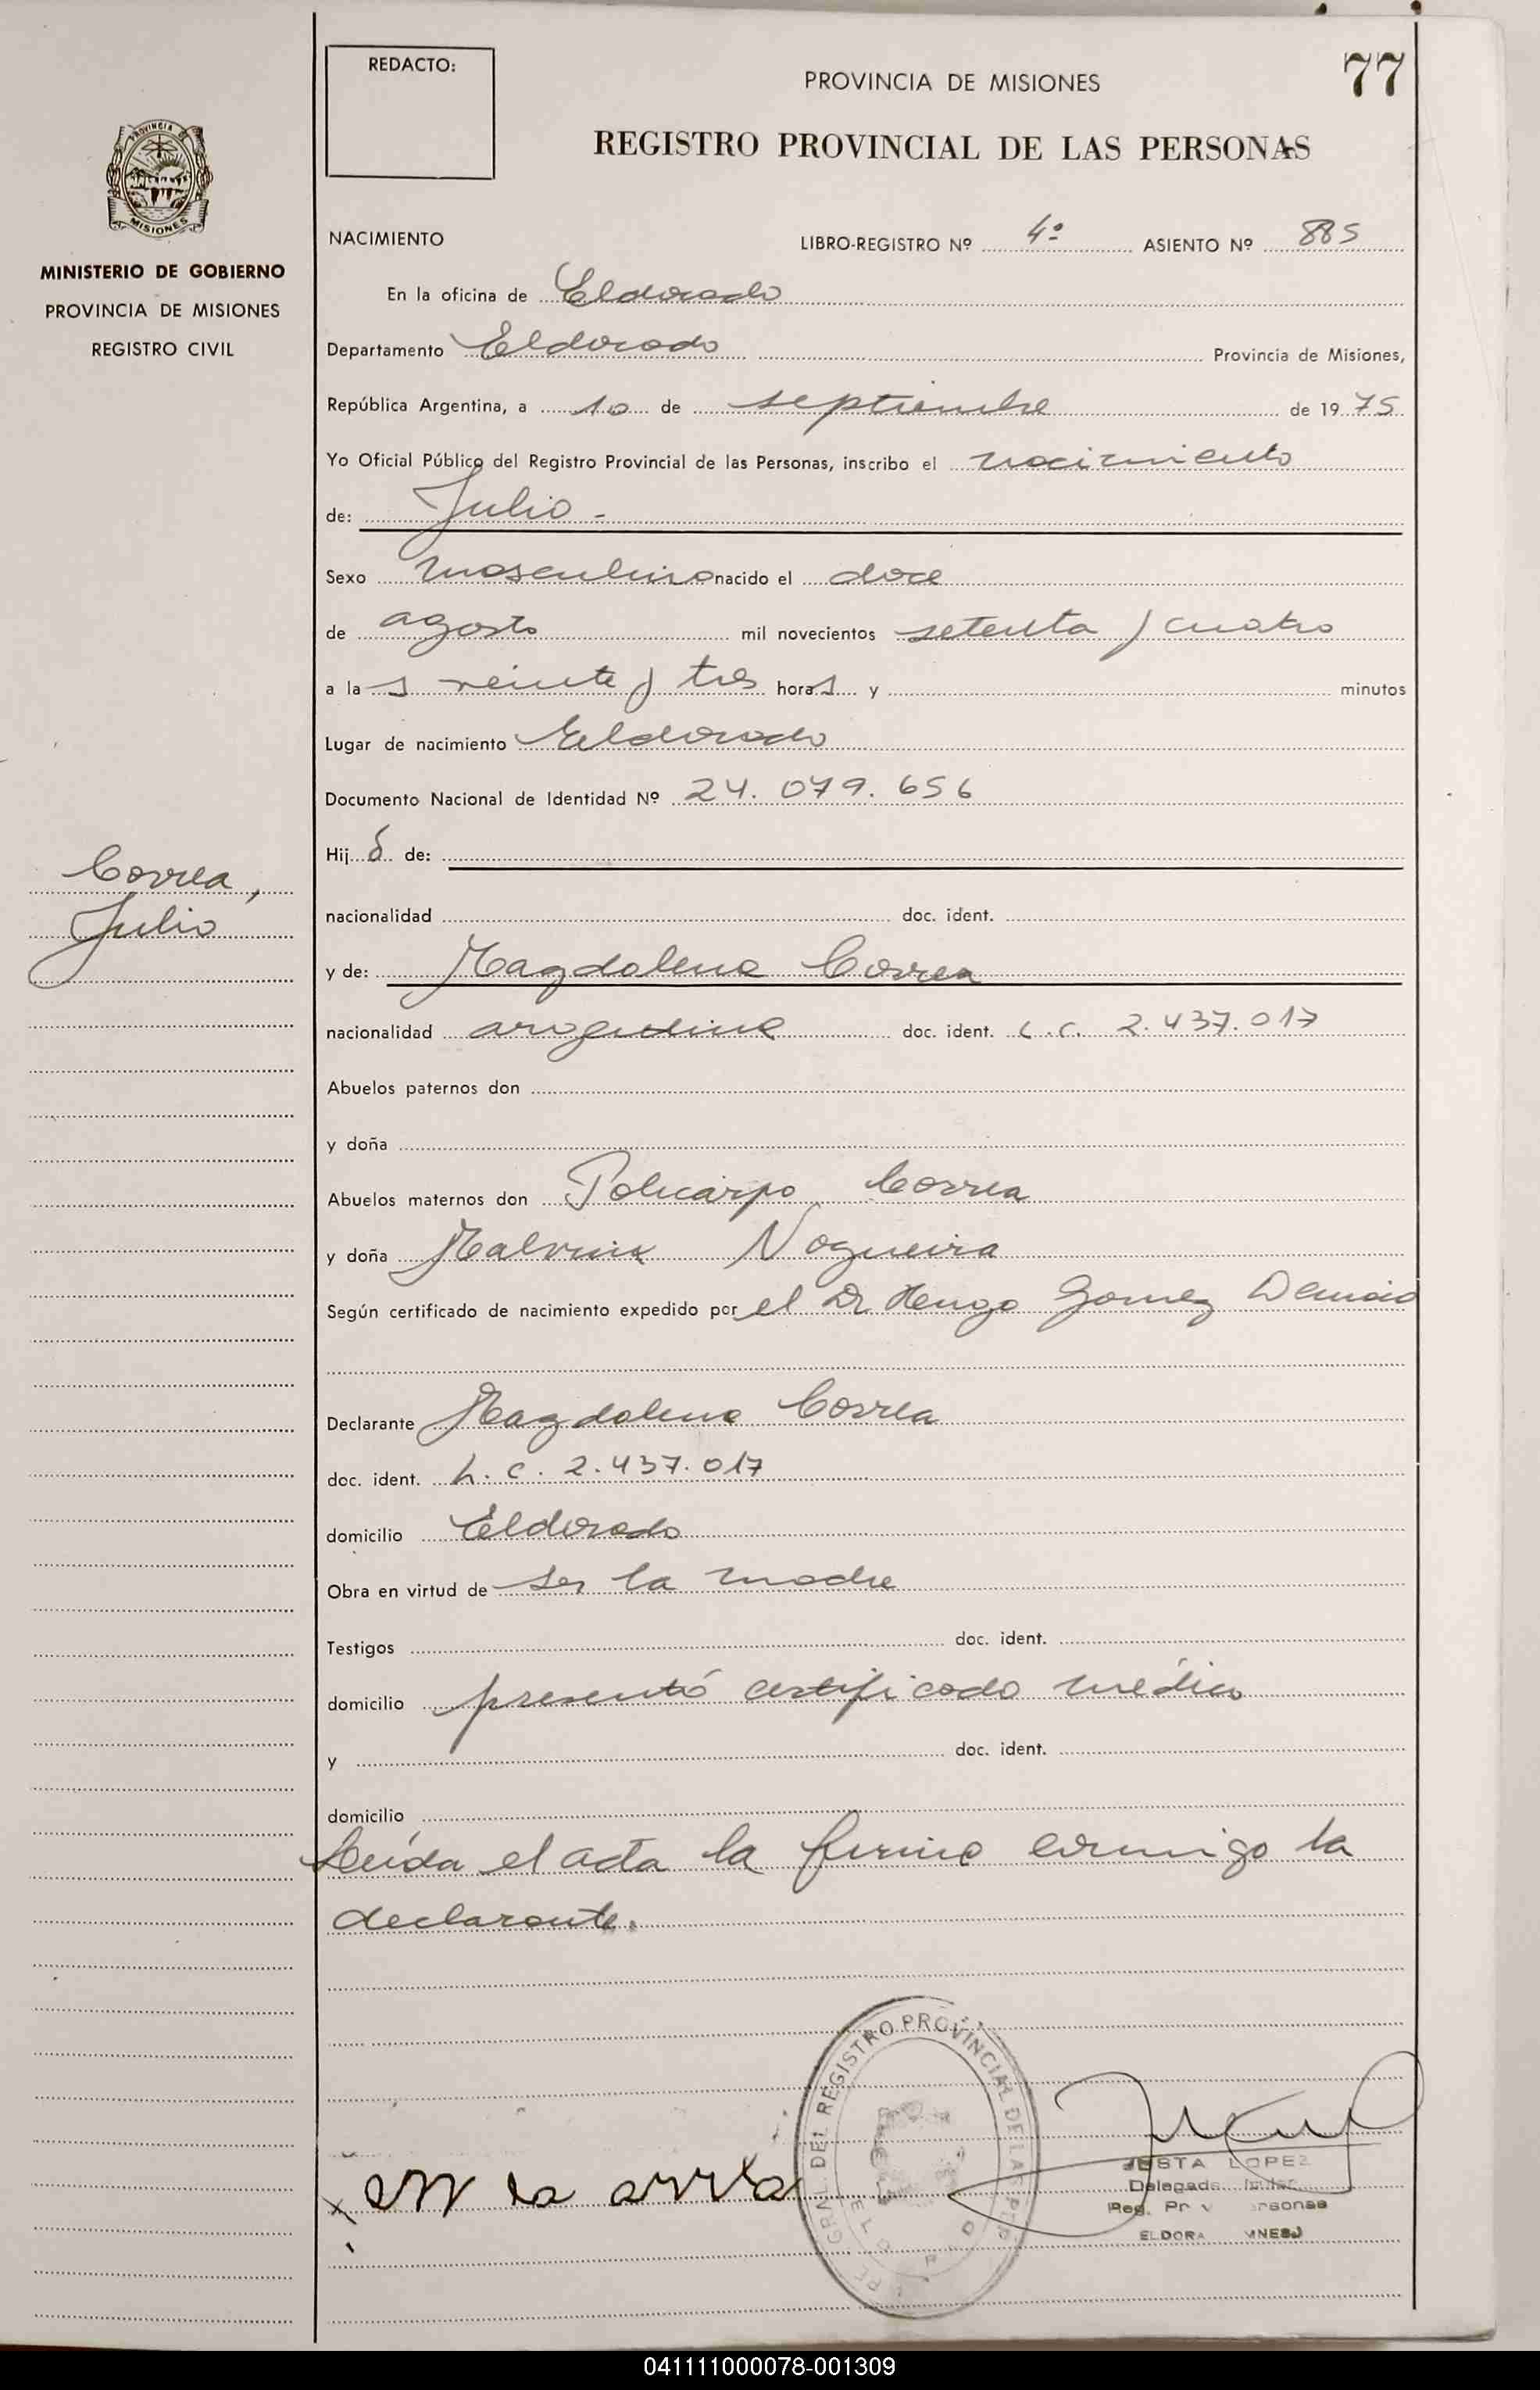 REDACTO:
PROVINCIA DE MISIONES
77
REGISTRO PROVINCIAL DE LAS PERSONAS
PROVINCIA DE
MISIONES
MINISTERIO DE GOBIERNO
PROVINCIA DE MISIONES
REGISTRO CIVIL
NACIMIENTO LIBRO-REGISTRO Nº 4º ASIENTO Nº 885
En la oficina de Eldorado
Departamento Eldorado Provincia de Misiones,
República Argentina, a 10 de septiembre de 1975
Yo Oficial Público del Registro Provincial de las Personas, inscribo el nacimiento
de: Julio -
Sexo masculino nacido el doce
de agosto mil novecientos setenta y cuatro
a las veinte y tres horas y minutos
Lugar de nacimiento Eldorado
Documento Nacional de Identidad Nº 24.079.656
Hijo de:
Correa,
Julio
nacionalidad doc. ident.
y de: Magdalena Correa
nacionalidad argentina doc. ident. L.C. 2.437.017
Abuelos paternos don
y doña
Abuelos maternos don Policarpo Correa
y doña Malvina Nogueira
Según certificado de nacimiento expedido por el Dr Hugo Gomez
Declarante Magdalena Correa
doc. ident. L.C. 2.437.017
domicilio Eldorado
Obra en virtud de ser la madre
Testigos doc. ident.
domicilio presentó certificado médico
y doc. ident.
domicilio
Leída el acta la firma conmigo la
declarante.
GRAL DEL REGISTRO PROVINCIAL DE LAS PER
JESTA LOPEZ
Delegada
Reg. Pr
ELDORA MNES)
041111000078-001309